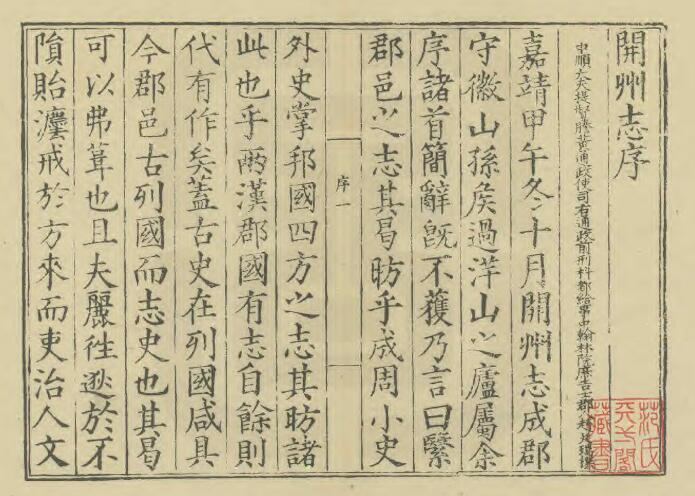 開州志序
中順大夫提督謄黃通政使司右通政前刑科都給事中翰林院庶吉士郡人趙廷瑞撰
嘉靖甲午冬十月開州志成郡
守徽山孫矦過洋山之廬屬余
序諸首簡辭旣不獲乃言曰繄
郡邑之志其曷昉乎成周小史
序一
外史掌邦國四方之志其昉諸
此也乎兩漢郡國有志自餘則
代有作矣葢古史在列國咸具
今郡邑古列國而志史也其曷
可以弗葺也且夫麗徃逖於不
隤貽灋戒於方來而吏治人文
范氏天一閣藏書